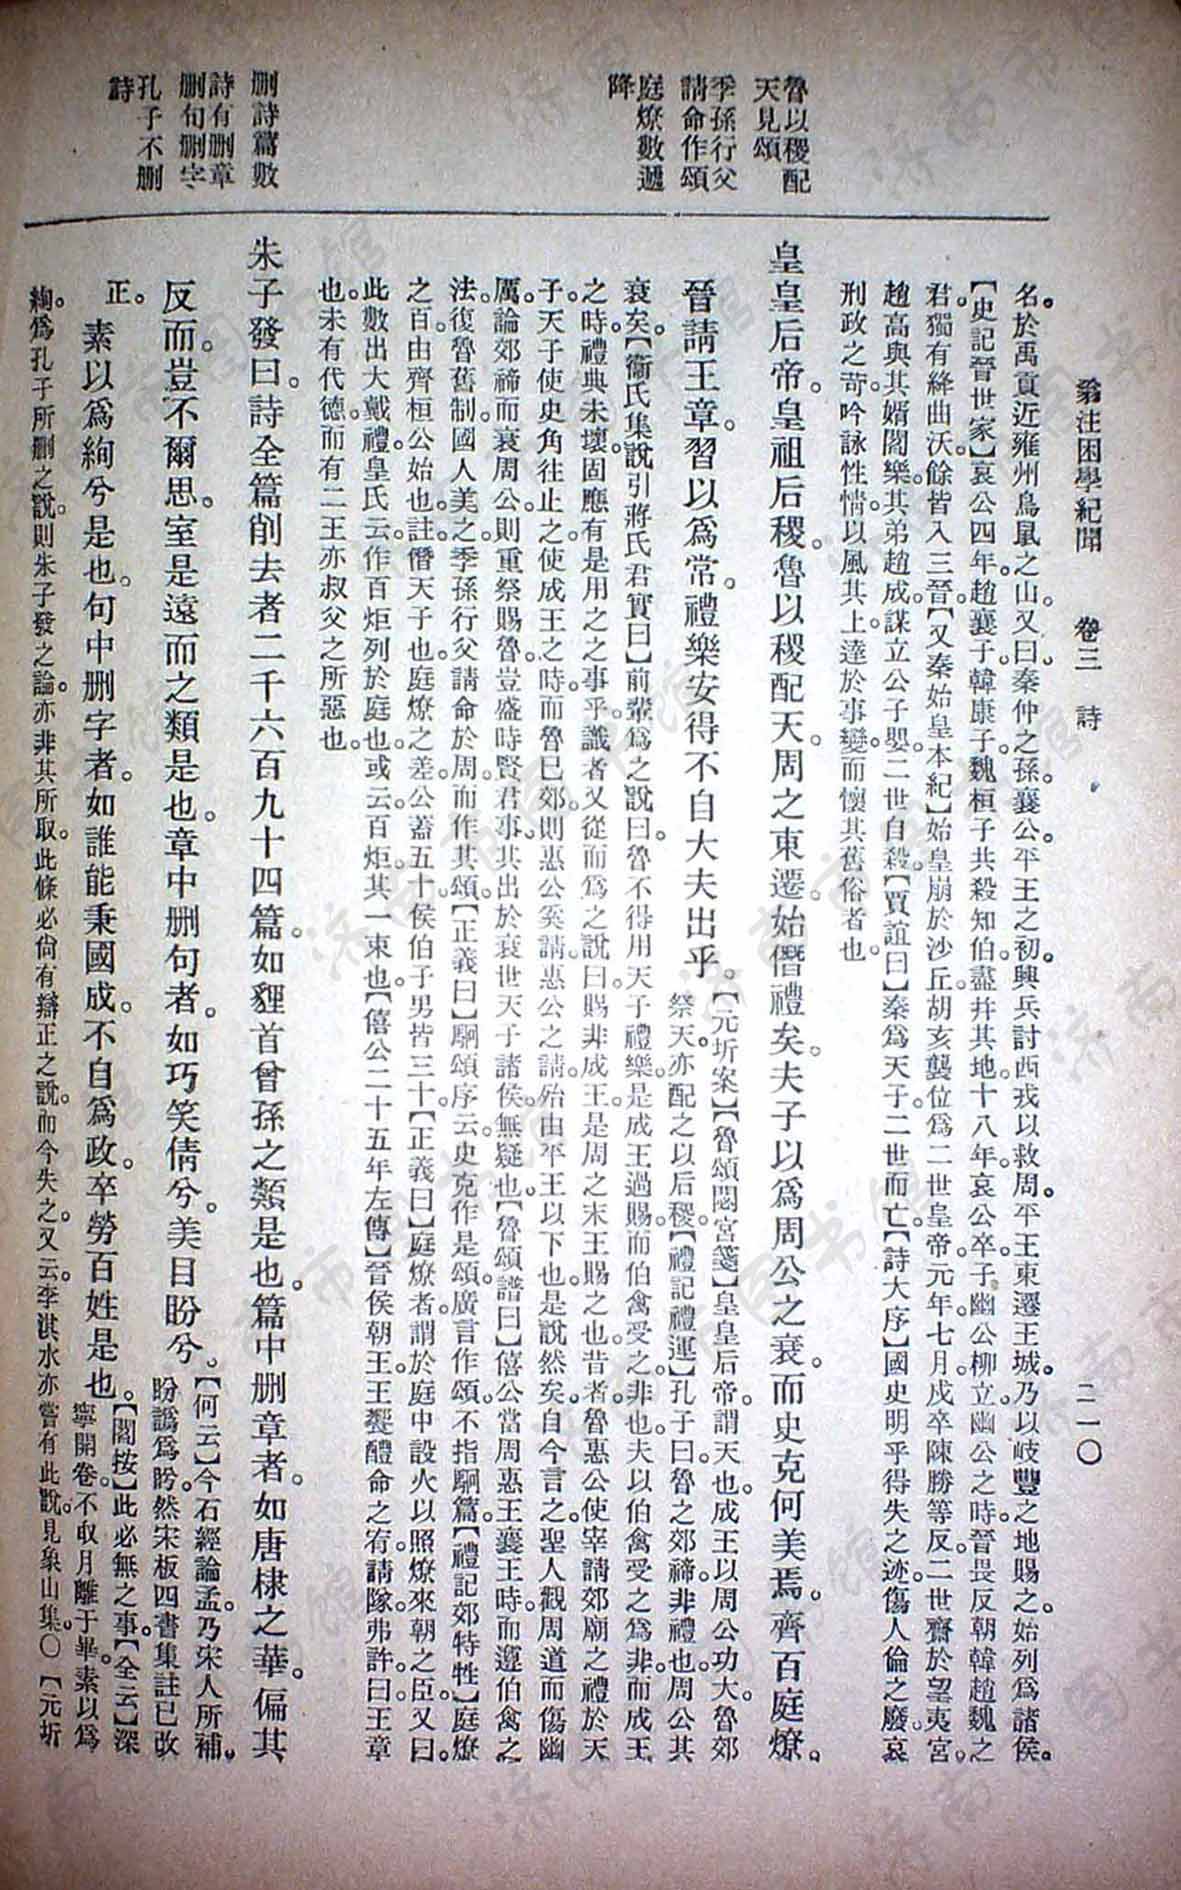 翁注困學紀聞　卷三　詩　二一〇
魯以稷配
天見頌
季孫行父
請命作頌
庭燎數遞
降
刪詩篇數
詩有刪章
刪句刪字
孔子不刪
詩
名。於禹貢近雍州鳥鼠之山。又曰。秦仲之孫襄公。平王之初。興兵討西戎以救周。平王東遷王城。乃以岐豐之地賜之。始列爲諸侯。
【史記晉世家】哀公四年。趙襄子。韓康子。魏桓子共殺知伯。盡幷其地。十八年。哀公卒。子幽公柳立。幽公之時。晉畏反朝韓趙魏之
君。獨有絳曲沃。餘皆入三晉。【又秦始皇本紀】始皇崩於沙丘。胡亥襲位爲二世皇帝。元年。七月。戍卒陳勝等反。二世齋於望夷宮。
趙高與其婿閻樂。其弟趙成。謀立公子嬰。二世自殺。【賈誼曰】秦爲天子。二世而亡。【詩大序】國史明乎得失之迹。傷人倫之廢。哀
刑政之苛。吟詠性情。以風其上。達於事變。而懷其舊俗者也。
皇皇后帝。皇祖后稷。魯以稷配天。周之東遷。始僭禮矣。夫子以爲周公之衰。而史克何美焉。齊百庭燎。
晉請王章。習以爲常。禮樂安得不自大夫出乎。
【元圻案】【魯頌閟宮箋】皇皇后帝。謂天也。成王以周公功大。魯郊
祭天。亦配之以后稷。【禮記禮運】孔子曰。魯之郊禘。非禮也。周公其
衰矣。【衞氏集說引蔣氏君實曰】前輩爲之說曰。魯不得用天子禮樂。是成王過賜。而伯禽受之。非也。夫以伯禽受之爲非。而成王
之時。禮典未壞。固應有是用之之事乎。識者又從而爲之說曰。賜非成王。是周之末王賜之也。昔者。魯惠公使宰請郊廟之禮於天
子。天子使史角往止之。使成王之時。而魯已郊。則惠公奚請。惠公之請。殆由平王以下也。是說然矣。自今言之。聖人觀周道而傷幽
厲。論郊禘而衰周公。則重祭賜魯。豈盛時賢君事。其出於衰世天子諸侯。無疑也。【魯頌譜曰】僖公當周惠王襄王時。而遵伯禽之
法。復魯舊制。國人美之。季孫行父請命於周。而作其頌。【正義曰】駉頌序云。史克作是頌。廣言作頌。不指駉篇。【禮記郊特牲】庭燎
之百。由齊桓公始也。註。僭天子也。庭燎之差。公蓋五十。侯伯子男皆三十。【正義曰】庭燎者。謂於庭中設火以照燎來朝之臣。又曰。
此數出大戴禮。皇氏云。作百炬列於庭也。或云。百炬其一束也。【僖公二十五年左傳】晉侯朝王。王饗醴。命之宥。請隧。弗許。曰。王章
也。未有代德。而有二王。亦叔父之所惡也。
朱子發曰。詩全篇削去者二千六百九十四篇。如貍首曾孫之類是也。篇中刪章者。如唐棣之華。偏其
反而。豈不爾思。室是遠而之類是也。章中刪句者。如巧笑倩兮。美目盼兮。
【何云】今石經論孟。乃宋人所補。
盼譌爲盻。然宋板四書集註已改
正。
素以爲絢兮是也。句中刪字者。如誰能秉國成。不自爲政。卒勞百姓是也。
【閻按】此必無之事。【全云】深
寧開卷。不取月離于畢。素以爲
絢。爲孔子所刪之說。則朱子發之論。亦非其所取。此條必尙有辯正之說。而今失之。又云。李淇水亦嘗有此說。見象山集。○【元圻